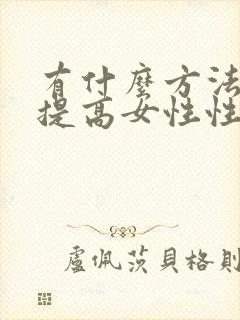 有什麼方法
提高女性性
盧佩茨貝格則